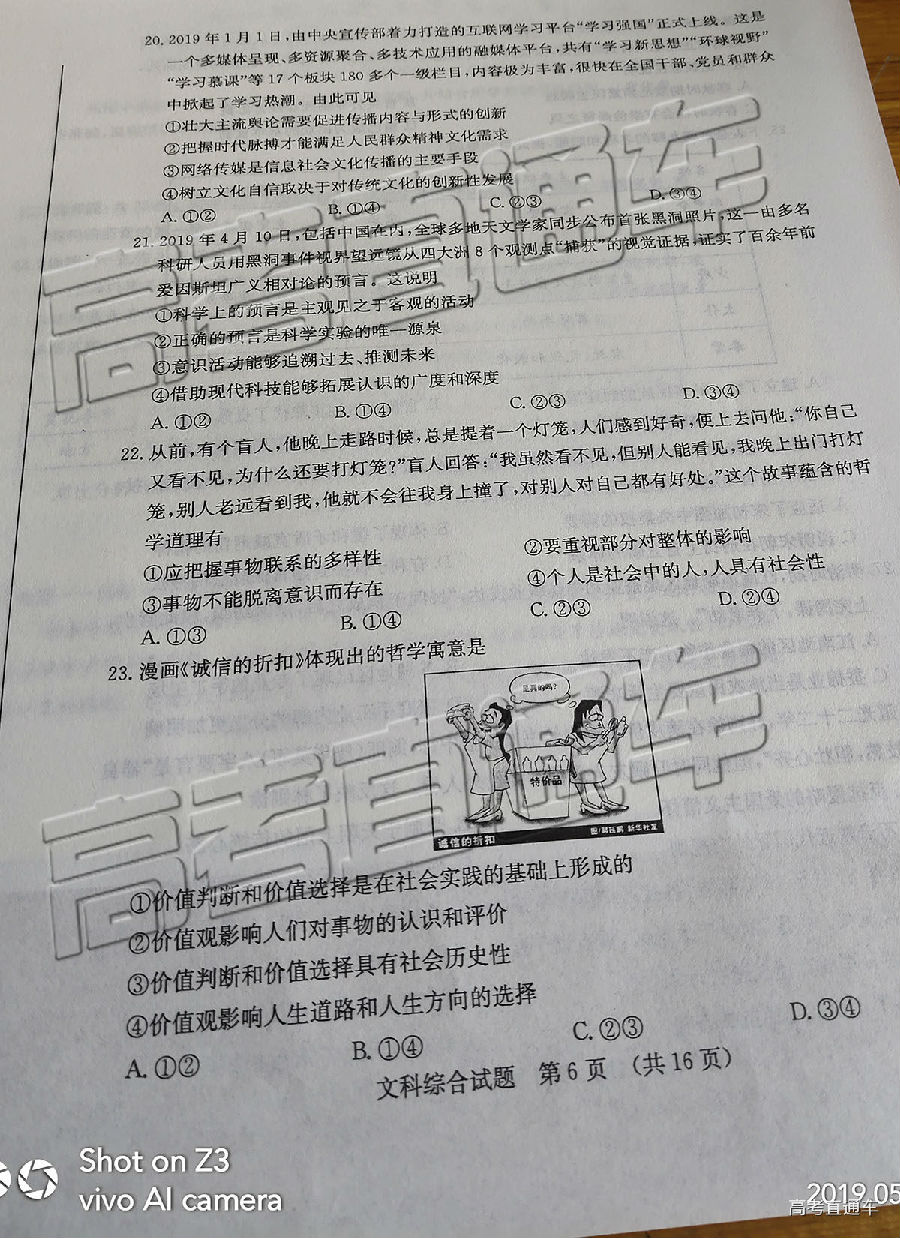 20. 2019 年 1 月 1 日,由中央宣传部着力打造的互联网学习平台“学习强国”正式上线。这是
一个多媒体呈现、多资源聚合、多技术应用的融媒体平台,共有“学习新思想”“环球视野”
“学习慕课”等 17 个板块 180 多个一级栏目,内容极为丰富,很快在全国干部、党员和群众
中掀起了学习热潮。由此可见
①壮大主流舆论需要促进传播内容与形式的创新
②把握时代脉搏才能满足人民群众精神文化需求
③网络传媒是信息社会文化传播的主要手段
④树立文化自信取决于对传统文化的创新性发展
A. ①② B. ①④ C. ②③ D. ③④
21. 2019 年 4 月 10 日,包括中国在内,全球多地天文学家同步公布首张黑洞照片,这一由多名
科研人员用黑洞事件视界望远镜从四大洲 8 个观测点“捕获”的视觉证据,证实了百余年前
爱因斯坦广义相对论的预言。这说明
①科学上的预言是主观见之于客观的活动
②正确的预言是科学实验的唯一源泉
③意识活动能够追溯过去、推测未来
④借助现代科技能够拓展认识的广度和深度
A. ①② B. ①④ C. ②③ D. ③④
22. 从前,有个盲人,他晚上走路时候,总是提着一个灯笼,人们感到好奇,便上去问他:“你自己
又看不见,为什么还要打灯笼?”盲人回答:“我虽然看不见,但别人能看见,我晚上出门打灯
笼,别人老远看到我,他就不会往我身上撞了,对别人对自己都有好处。”这个故事蕴含的哲
学道理有
①应把握事物联系的多样性 ②要重视部分对整体的影响
③事物不能脱离意识而存在 ④个人是社会中的人,人具有社会性
A. ①③ B. ①④ C. ②③ D. ②④
23. 漫画《诚信的折扣》体现出的哲学寓意是
是真的吗?
特价品
诚信的折扣
新华社发
①价值判断和价值选择是在社会实践的基础上形成的
②价值观影响人们对事物的认识和评价
③价值判断和价值选择具有社会历史性
④价值观影响人生道路和人生方向的选择
A. ①② B. ①④ C. ②③ D. ③④
文科综合试题 第 6 页 (共 16 页)
高考直通车
高考直通车
Shot on Z3
vivo AI camera
2019.05
高考直通车